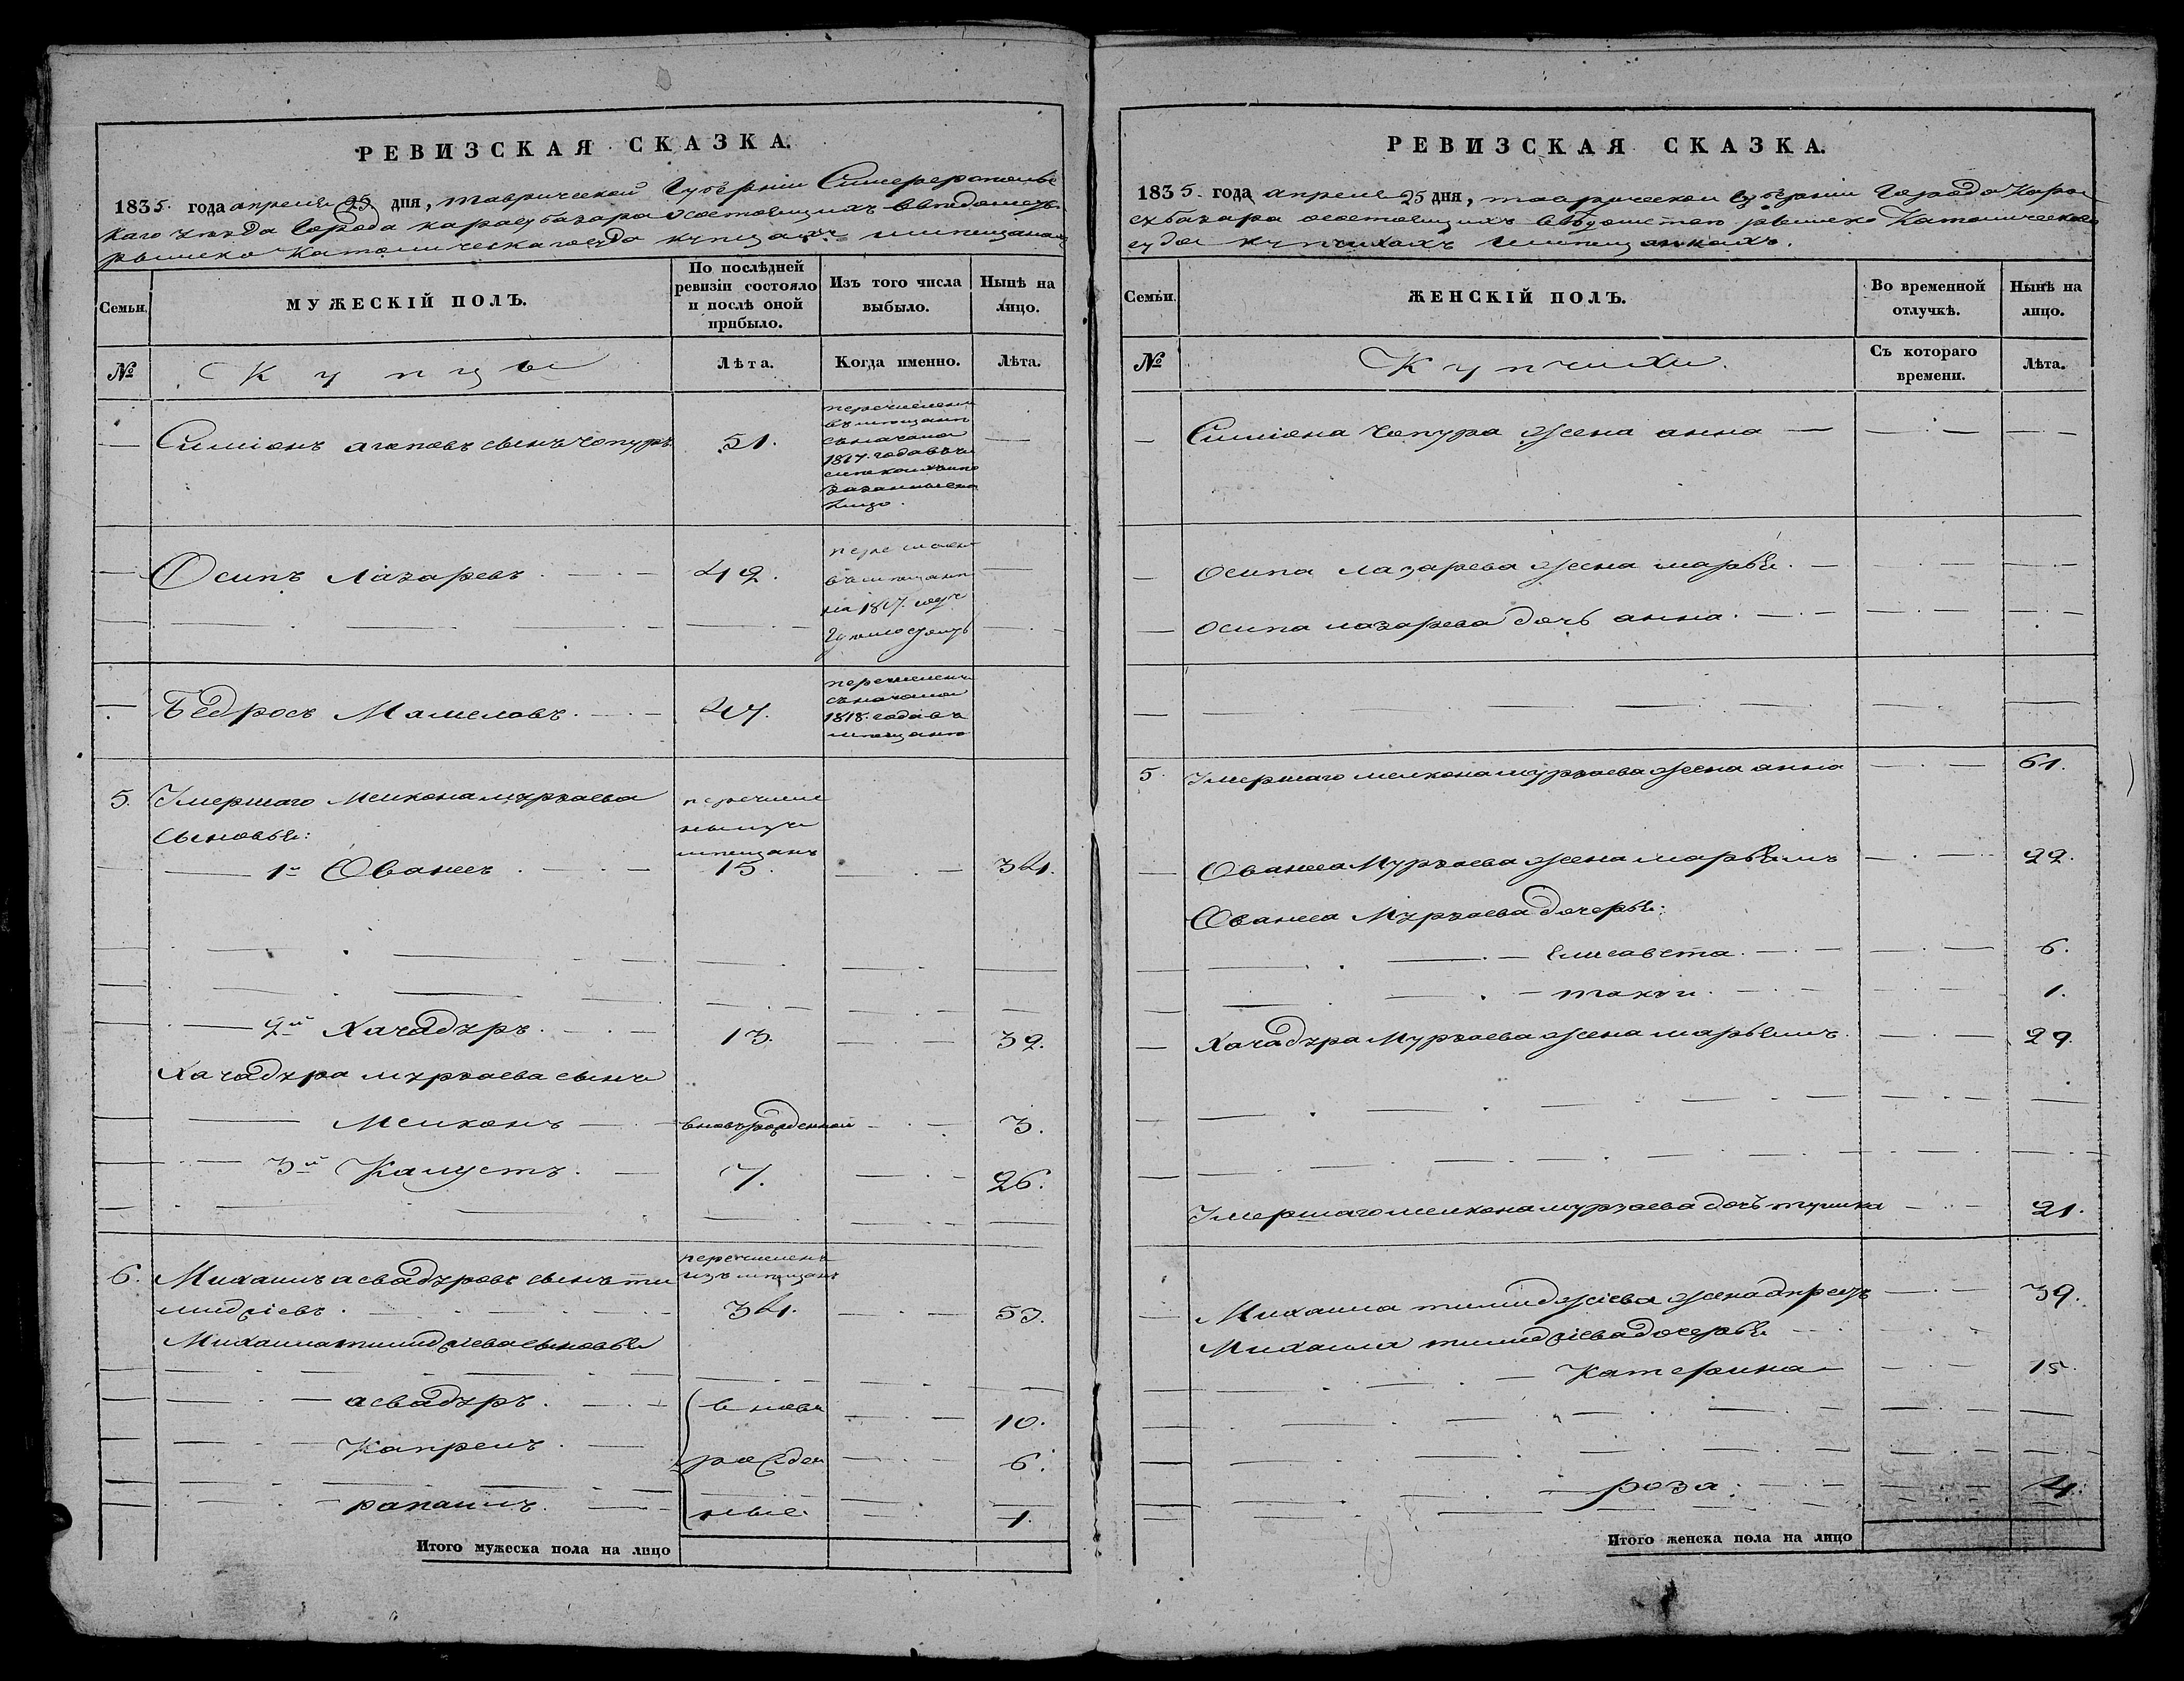 РЕВИЗСКАЯ СКАЗКА.
1835. года апреля 25 дня, Таврической Губерніи Симферополь
скаго уезда Города карасубазара осостоящихъ введомст
римско Католическаго суда купцахъ имещанахъ
Семьи.
МУЖЕСКІЙ ПОЛЪ.
По послѣдней
ревизіи состояло
и послѣ оной
прибыло.
Изъ того числа
выбыло.
Нынѣ на
лицо.
№
Купцы
Лѣта.
Когда именно.
Лѣта.
Симіонъ агаповъ сынъ чопуръ
51.
перечисленъ
въ мещане
съ начала
1817. года
лицо.
Осипъ Лазаревъ.
49.
въ мещане
1817. году
Бедросъ Мамеловъ.
47.
перечисленъ
съ начала
1818. года въ
мещане
5. Умершаго Мелкона мурзаева
сыновья:
перечисле
ны изъ
мещанъ
1й Ованесъ.
15.
34.
2й Хачадуръ.
13.
32.
Хачадура мурзаева сынъ
Мелконъ
вновьрожденной
3.
3й Калустъ.
7.
26.
6. Михаилъ асвадуровъ сынъ ти
мидзіевъ.
перечисленъ
изъ мещанъ
34.
53.
Михаила тимидзіева сыновья
асвадуръ.
вновь
10.
Капрелъ.
рожден
6.
рапаилъ.
ные.
1.
Итого мужеска пола на лицо
РЕВИЗСКАЯ СКАЗКА.
1835. года апреля 25 дня, таврической губерніи Города Кара
субазара осостоящихъ вѣдомством римско Католическаго
суда купчихахъ имещанкахъ.
Семьи.
ЖЕНСКІЙ ПОЛЪ.
Во временной
отлучкѣ.
Нынѣ на
лицо.
№
Купчихи.
Съ котораго
времени.
Лѣта.
Симіона Чопура жена анна
Осипа лазарева жена марья.
осипа лазарева дочь анна.
5. Умершаго мелкона мурзаева жена анна
61.
Ованеса Мурзаева жена марьямъ
22.
Ованеса Мурзаева дочерья:
Елисавета.
6.
такуи.
1.
Хачадура Мурзаева жена марьямъ.
29.
Умершаго мелкона мурзаева дочь тушка
21.
Михаила тимиджіева жена
39.
Михаила тимидзіева дочерья
Катерина
15.
роза.
4.
Итого женска пола на лицо